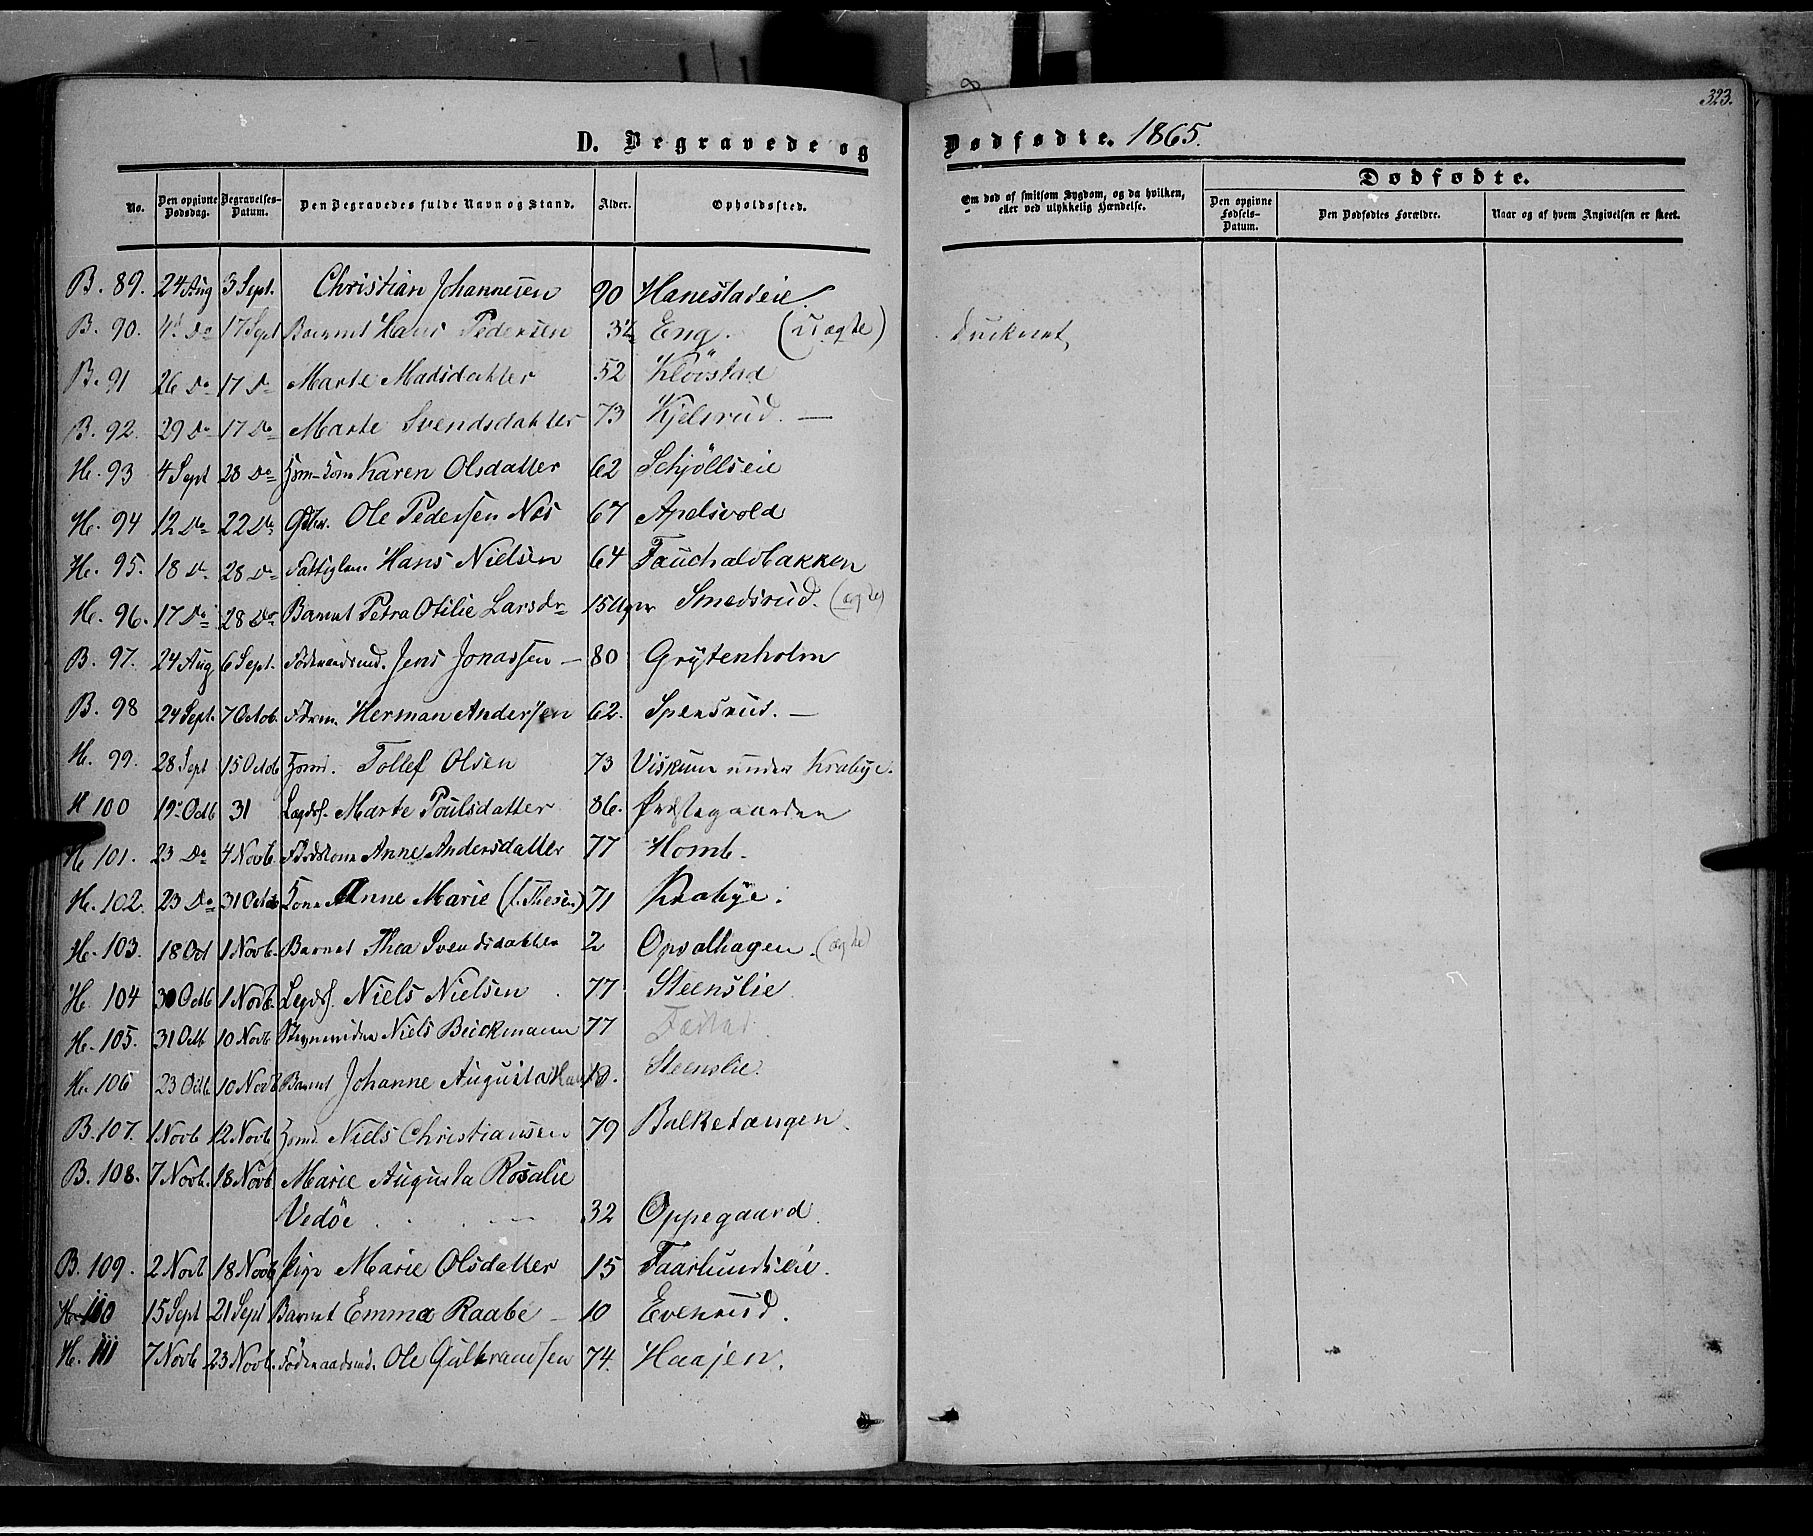 323.
D. Begravede og Dødfødte. 1865.
No. Den opgivne Dødsdag. Begravelses-Datum. Den Begravedes fulde Navn og Stand. Alder. Opholdssted. Om død af smitsom Sygdom, og da hvilken, eller ved ulykkelig Hændelse.
Dødfødte.
Den opgivne Fødsels-Datum. Den Dødfødtes Forældre. Naar og af hvem Angivelsen er skeet.
B. 89. 24 Aug 3 Sept. Christian Johannesen 90 Hanestadeie.
B. 90. 4d Do 17 Sept Barnet Hans Pedersen Eng. (uægte) Druknet
B. 91 26 Do 17 Do Marte Madsdatter 52 Kløvstad
B. 92. 29 Do 17 Do Marte Svendsdatter 73 Kjelsrud. —
H. 93 4 Sept 28 Do Karen Olsdatter 62 Schjöllseie
H. 94 12 Do 22 Do Gbr. Ole Pedersen Nøs 67 Apelsvold
H. 95. 18 D. 28 Do Fattiglem Hans Nielsen 64 Fauchaldbakken
H. 96. 17 Do 28 Do Barnet Petra Otilie Larsdr 15 Uger Smedsrud. (ægte)
B. 97. 24 Aug 6 Sept. Føderaadsmd. Jens Jonassen — 80 Grytenholm
B. 98 24 Sept. 7 Octob. Herman Andersen 62. Spensrud. —
H. 99. 28 Sept 15 Octob Tollef Olsen 73 Viskum under Krabye.
H 100 19 Octb 31 Lægdsl. Marte Poulsdatter 86. Præstegaarden
H 101. 23 Do 4 Novb. Anne Andersdatter 77 Homb.
H. 102. 23 Do 31 Octob Kone Anne Marie (f. Thesen) 71 Krabye.
H. 103. 18 Oct 1 Novb. Barnet Thea Svendsdatter 2 Opvalhagen. (ægte)
H. 104 30 Octb 1 Novb. Legdsl. Niels Nielsen 77 Steenslie.
H. 105. 31 Octb 10 Novb. Niels Beickmann 77
H. 106 23 Octb. 10 Novb Barnet Johanne Augusta Steenslie.
B. 107. 1 Novb 12 Novb. Niels Christiansen 79 Balketangen.
B. 108. 7 Novb. 18 Novb Marie Augusta Rosalie
Vedøe 32 Oppegaard.
B. 109. 2 Novb 18 Novb Pige Marie Olsdatter 15 Faarlundseie.
H. 110 15 Sept 21 Sept Barnet Emma Raabe — 10 Evenrud.
H. 111 7 Novb. 23 Novb. Føderaadsmd. Ole Gulbransen 74. Haajen.